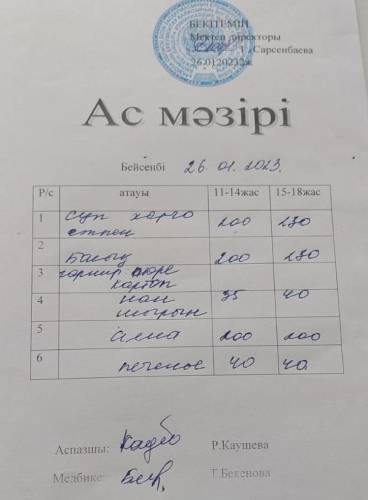 БЕКІТЕМІН
Мектеп директоры
Г. Сарсенбаева
26.0120232ж
Ас мәзірі
Бейсенбі 26.01.2023
Р/с атауы 11-14жас 15-18жас
1 суп харчо 200 250
етпен
2 Балық 200 250
3 гарнир пюре
картоп
4 нан 35 40
шырын
5 алма 200 200
6 печенье 40 40
Аспазшы: Р.Каушева
Медбике: Г.Бекенова